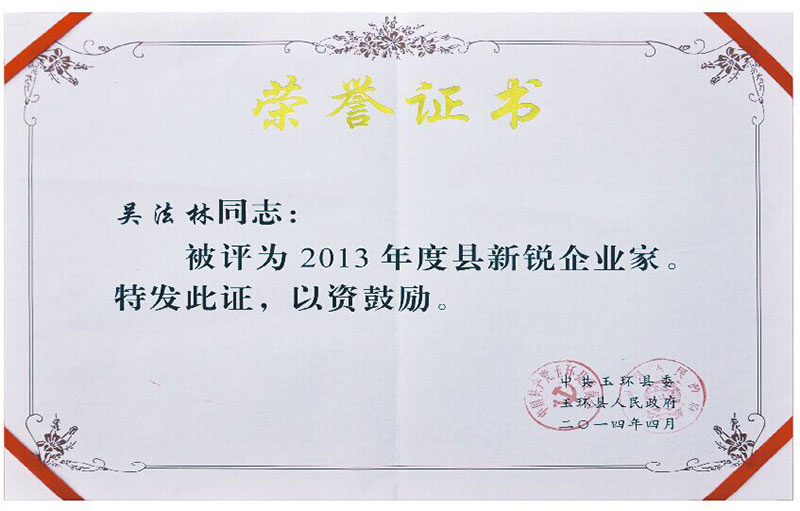 荣誉证书
吴法林同志：
被评为2013年度县新锐企业家。
特发此证，以资鼓励。
中共玉环县委
玉环县人民政府
二〇一四年四月